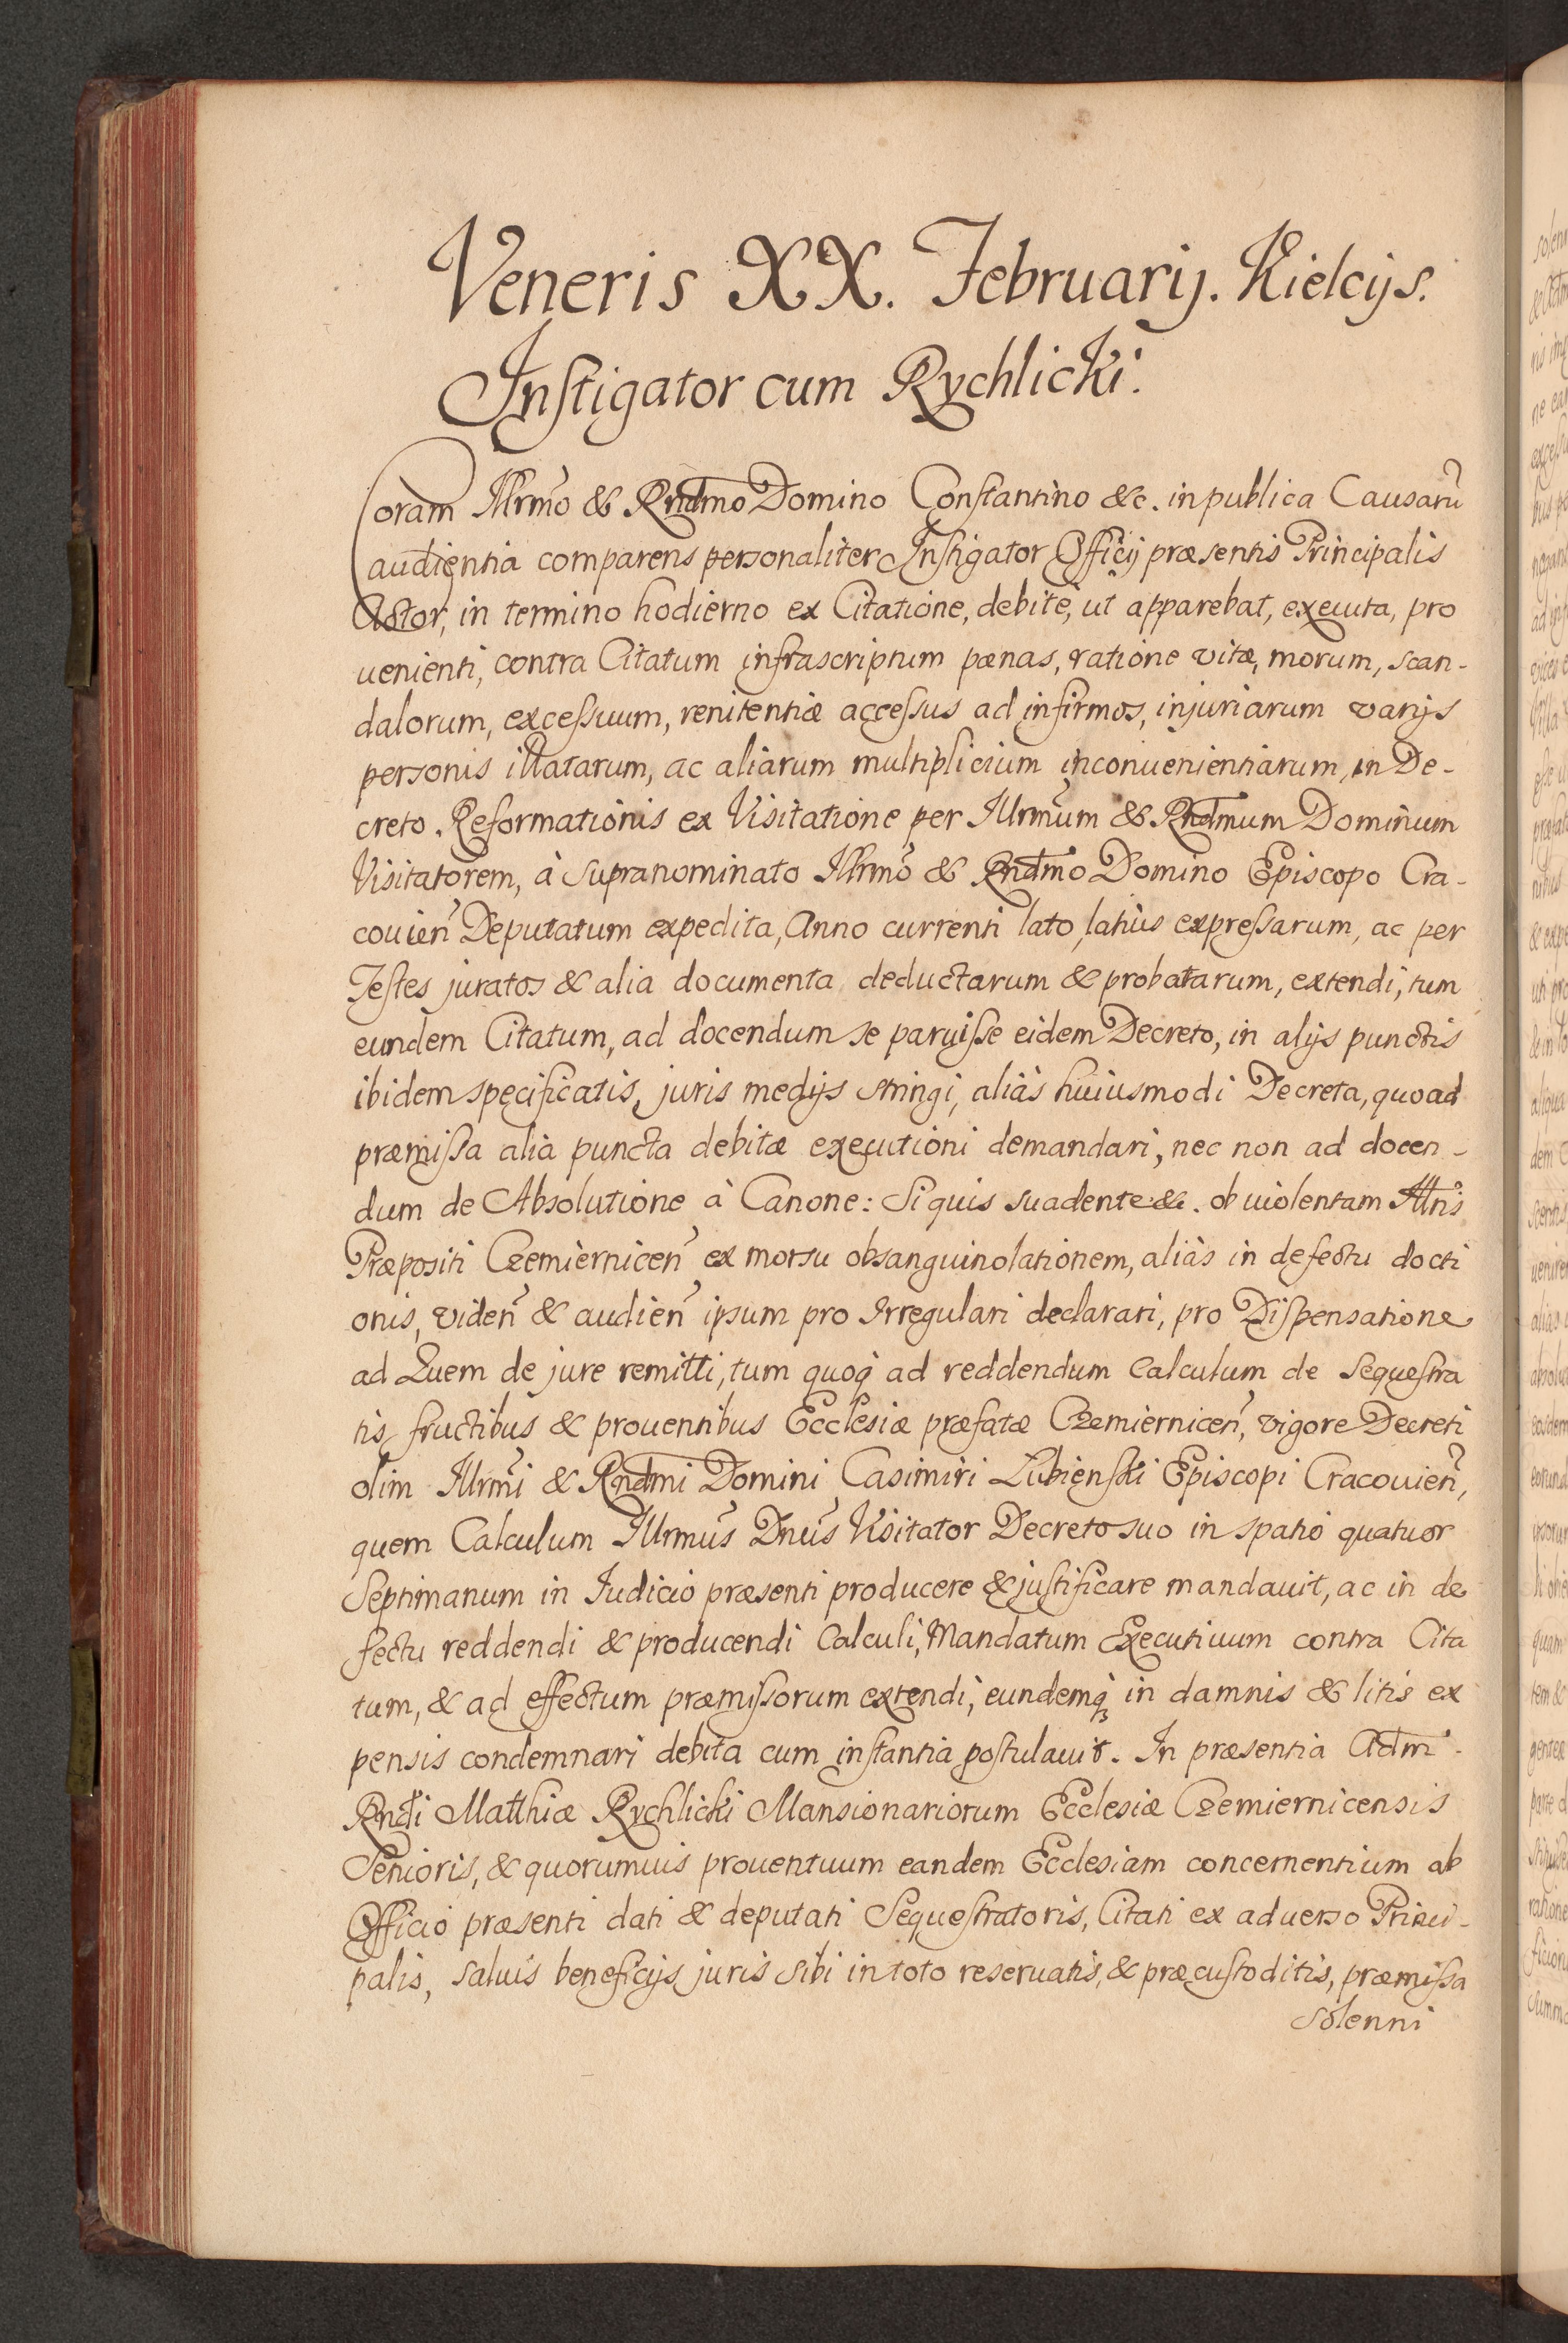 Veneris XX. Februarij. Kielcijs.
Instigator cum Rychlicki.
Coram Illrmo & Rndmo Domino Constantino &c. in publica Causarũ
audientia comparens personaliter Instigator Officij præsentis Principalis
Actor, in termino hodierno ex Citatione, debitè, ut apparebat, executa, pro
uenienti, contra Citatum infrascriptum pænas, ratione vitæ, morum, scan-
dalorum, excessuum, renitentiæ accessus ad infirmos, injuriarum varijs
personis illatarum, ac aliarum multiplicium inconuenientiarum, in De-
creto Reformationis ex Visitatione per Illrmum & Rndmum Dominum
Visitatorem, à supranominato Illrmo & Rndmo Domino Episcopo Cra-
couien Deputatum expedita, Anno currenti lato, latius expressarum, ac per
Testes juratos & alia documenta deductarum & probatarum, extendi, tum
eundem Citatum, ad docendum se paruisse eidem Decreto, in alijs punctis
ibidem specificatis, juris medijs stringi, aliàs huiusmodi Decreta, quoad
præmissa alia puncta debitæ executioni demandari, nec non ad docen-
dum de Absolutione à Canone: Siquis suadente &c. ob uiolentam Altris
Præpositi Czemiernicen ex morsu obsanguinolationem, aliàs in defectu docti
onis, viden & audien ipsum pro Irregulari declarari, pro Dispensatione
ad Quem de jure remitti, tum quoq ad reddendum Calculum de sequestra
tis fructibus & prouentibus Ecclesiæ præfatæ Czemiernicen, vigore Decreti
olim Illrmi & Rndmi Domini Casimiri Lubienski Episcopi Cracouien,
quem Calculum Illrmus Dnus Visitator Decreto suo in spatio quatuor
Septimanum in Judicio præsenti producere & justificare mandauit, ac in de
fectu reddendi & producendi Calculi, Mandatum Executiuum contra Cita
tum, & ad effectum præmissorum extendi, eundemq in damnis & litis ex
pensis condemnari debita cum instantia postulauit. In præsentia Adm
Rndi Matthiæ Rychlicki Mansionariorum Ecclesiæ Czemiernicensis
Senioris, & quorumuis prouentuum eandem Ecclesiam concernentium ab
Officio præsenti dati & deputati Sequestratoris, Citati ex aduerso Princi-
palis, saluis beneficijs juris sibi in toto reseruatis, & præcustoditis, præmissa
solenni